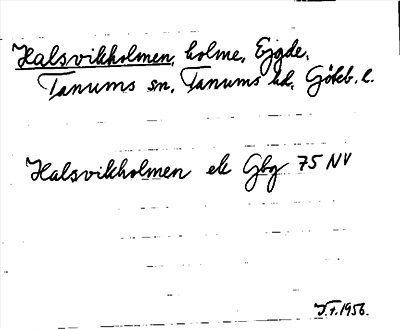 Halsvikholmen, holme, Ejgde,
Tanums sn, Tanums hd, Göteb. l.
Halsvikholmen ek Gbg 75 NV
J.t.1956.